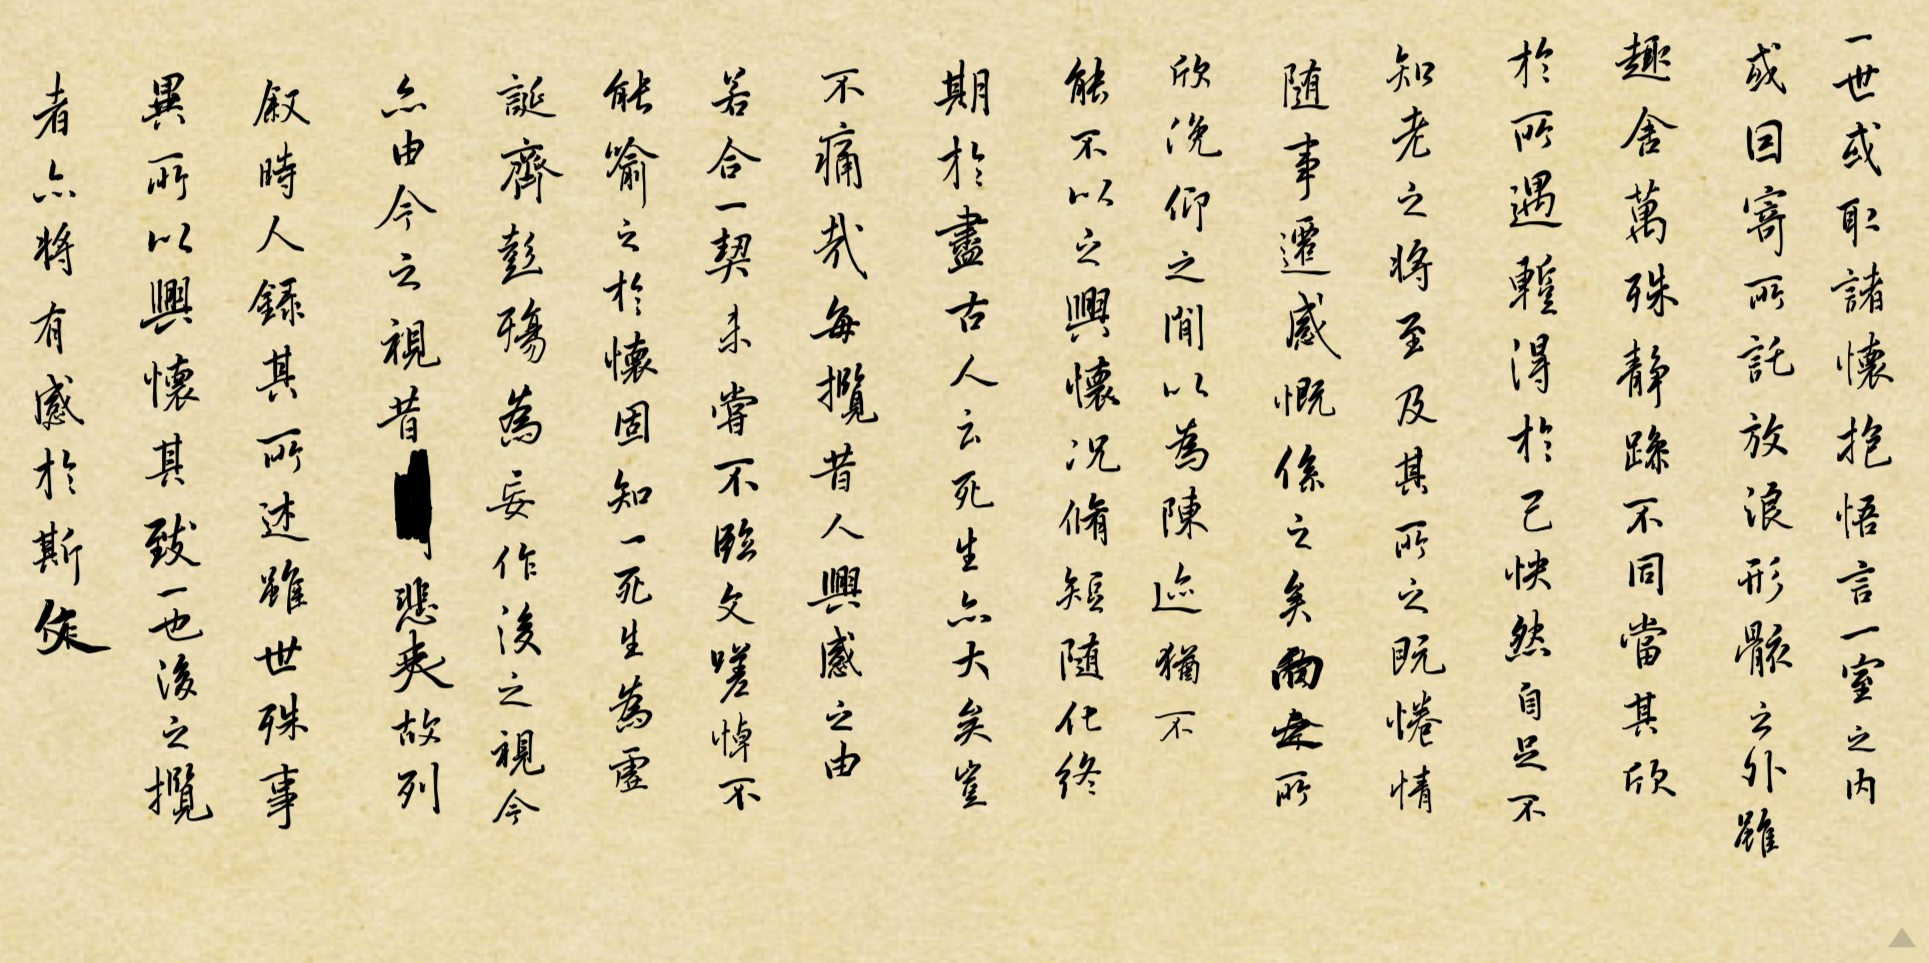 一世或取諸懷抱悟言一室之內
或因寄所託放浪形骸之外雖
趣舍萬殊靜躁不同當其欣
於所遇暫得於己怏然自足不
知老之將至及其所之既惓情
隨事遷感慨係之矣向之所
欣俛仰之閒以為陳迹猶不
能不以之興懷況脩短隨化終
期於盡古人云死生亦大矣豈
不痛哉每攬昔人興感之由
若合一契未嘗不臨文嗟悼不
能喻之於懷固知一死生為虛
誕齊彭殤為妄作後之視今
亦由今之視昔悲夫故列
敘時人錄其所述雖世殊事
異所以興懷其致一也後之攬
者亦將有感於斯文